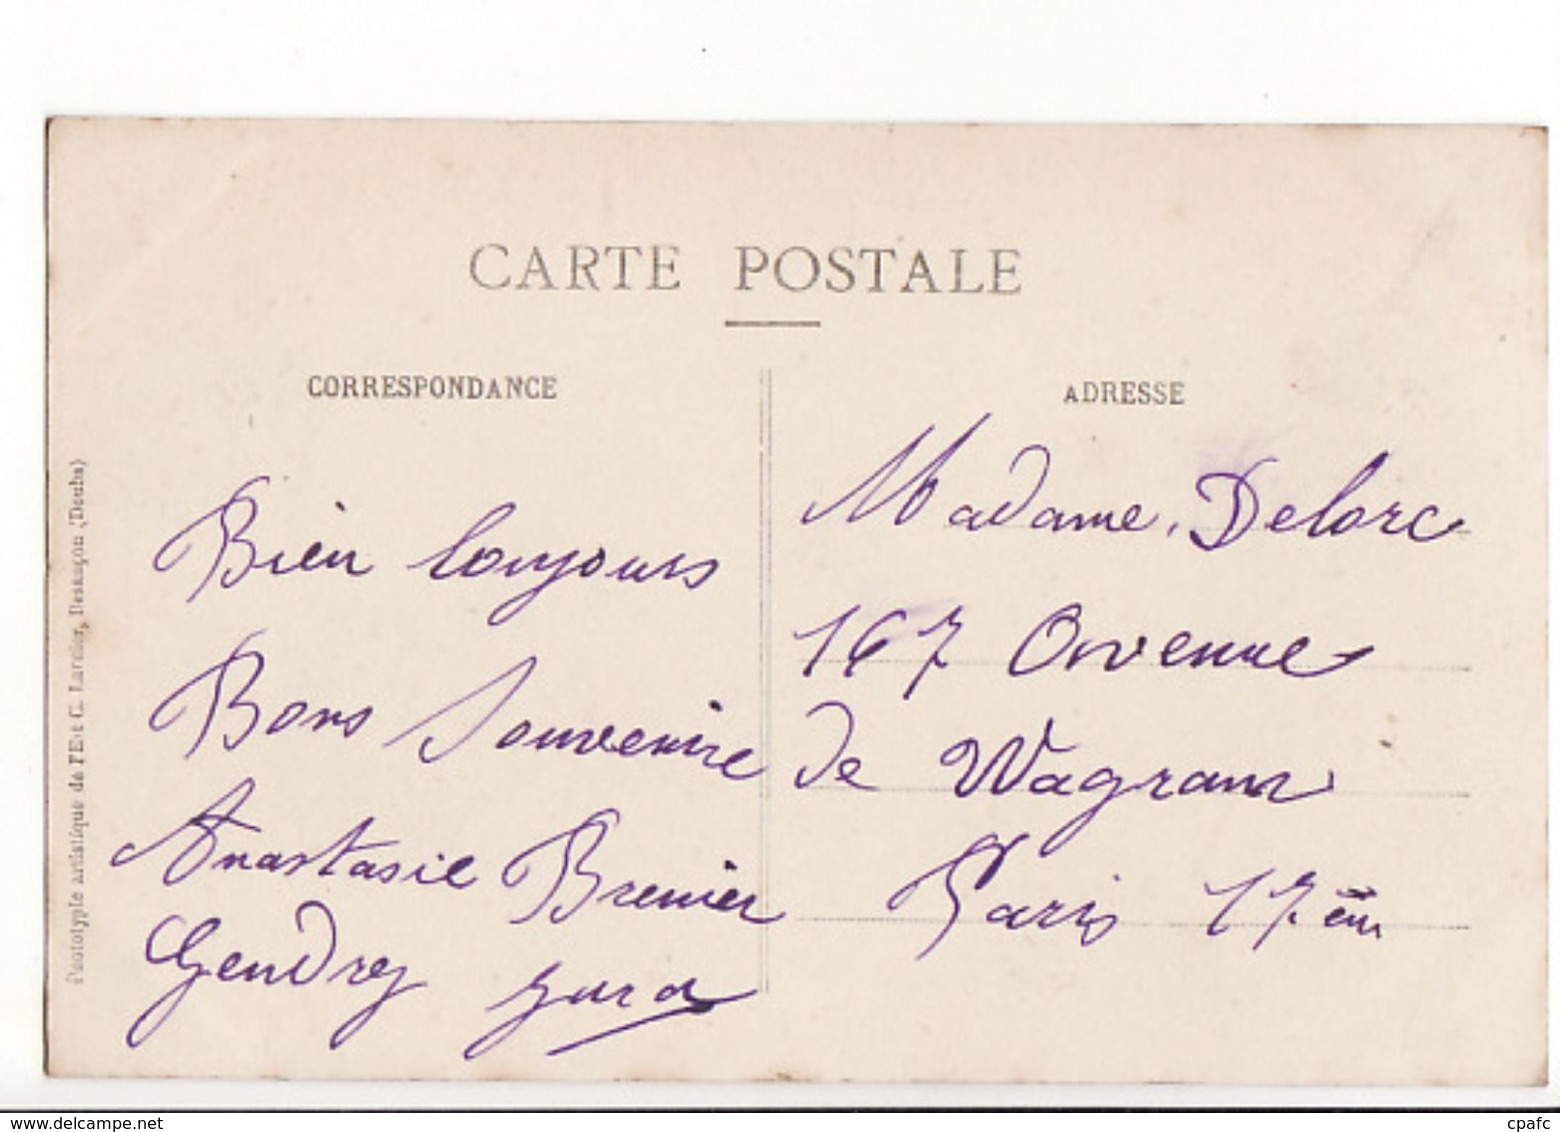 CARTE POSTALE
CORRESPONDANCE
Bien toujours
Bons Souvenire
Anastasie Brenier
Gendrey Jura
ADRESSE
Madame Delorc
167 Avenue
de Wagram
Paris 17 em
Phototypie artistique de l'Est C. Lardier, Besançon (Doubs)
delcampe.net
cpafc